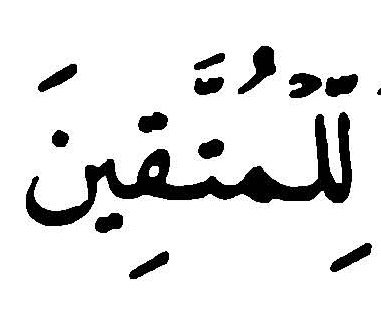 لِّلْمُتَّقِينَ